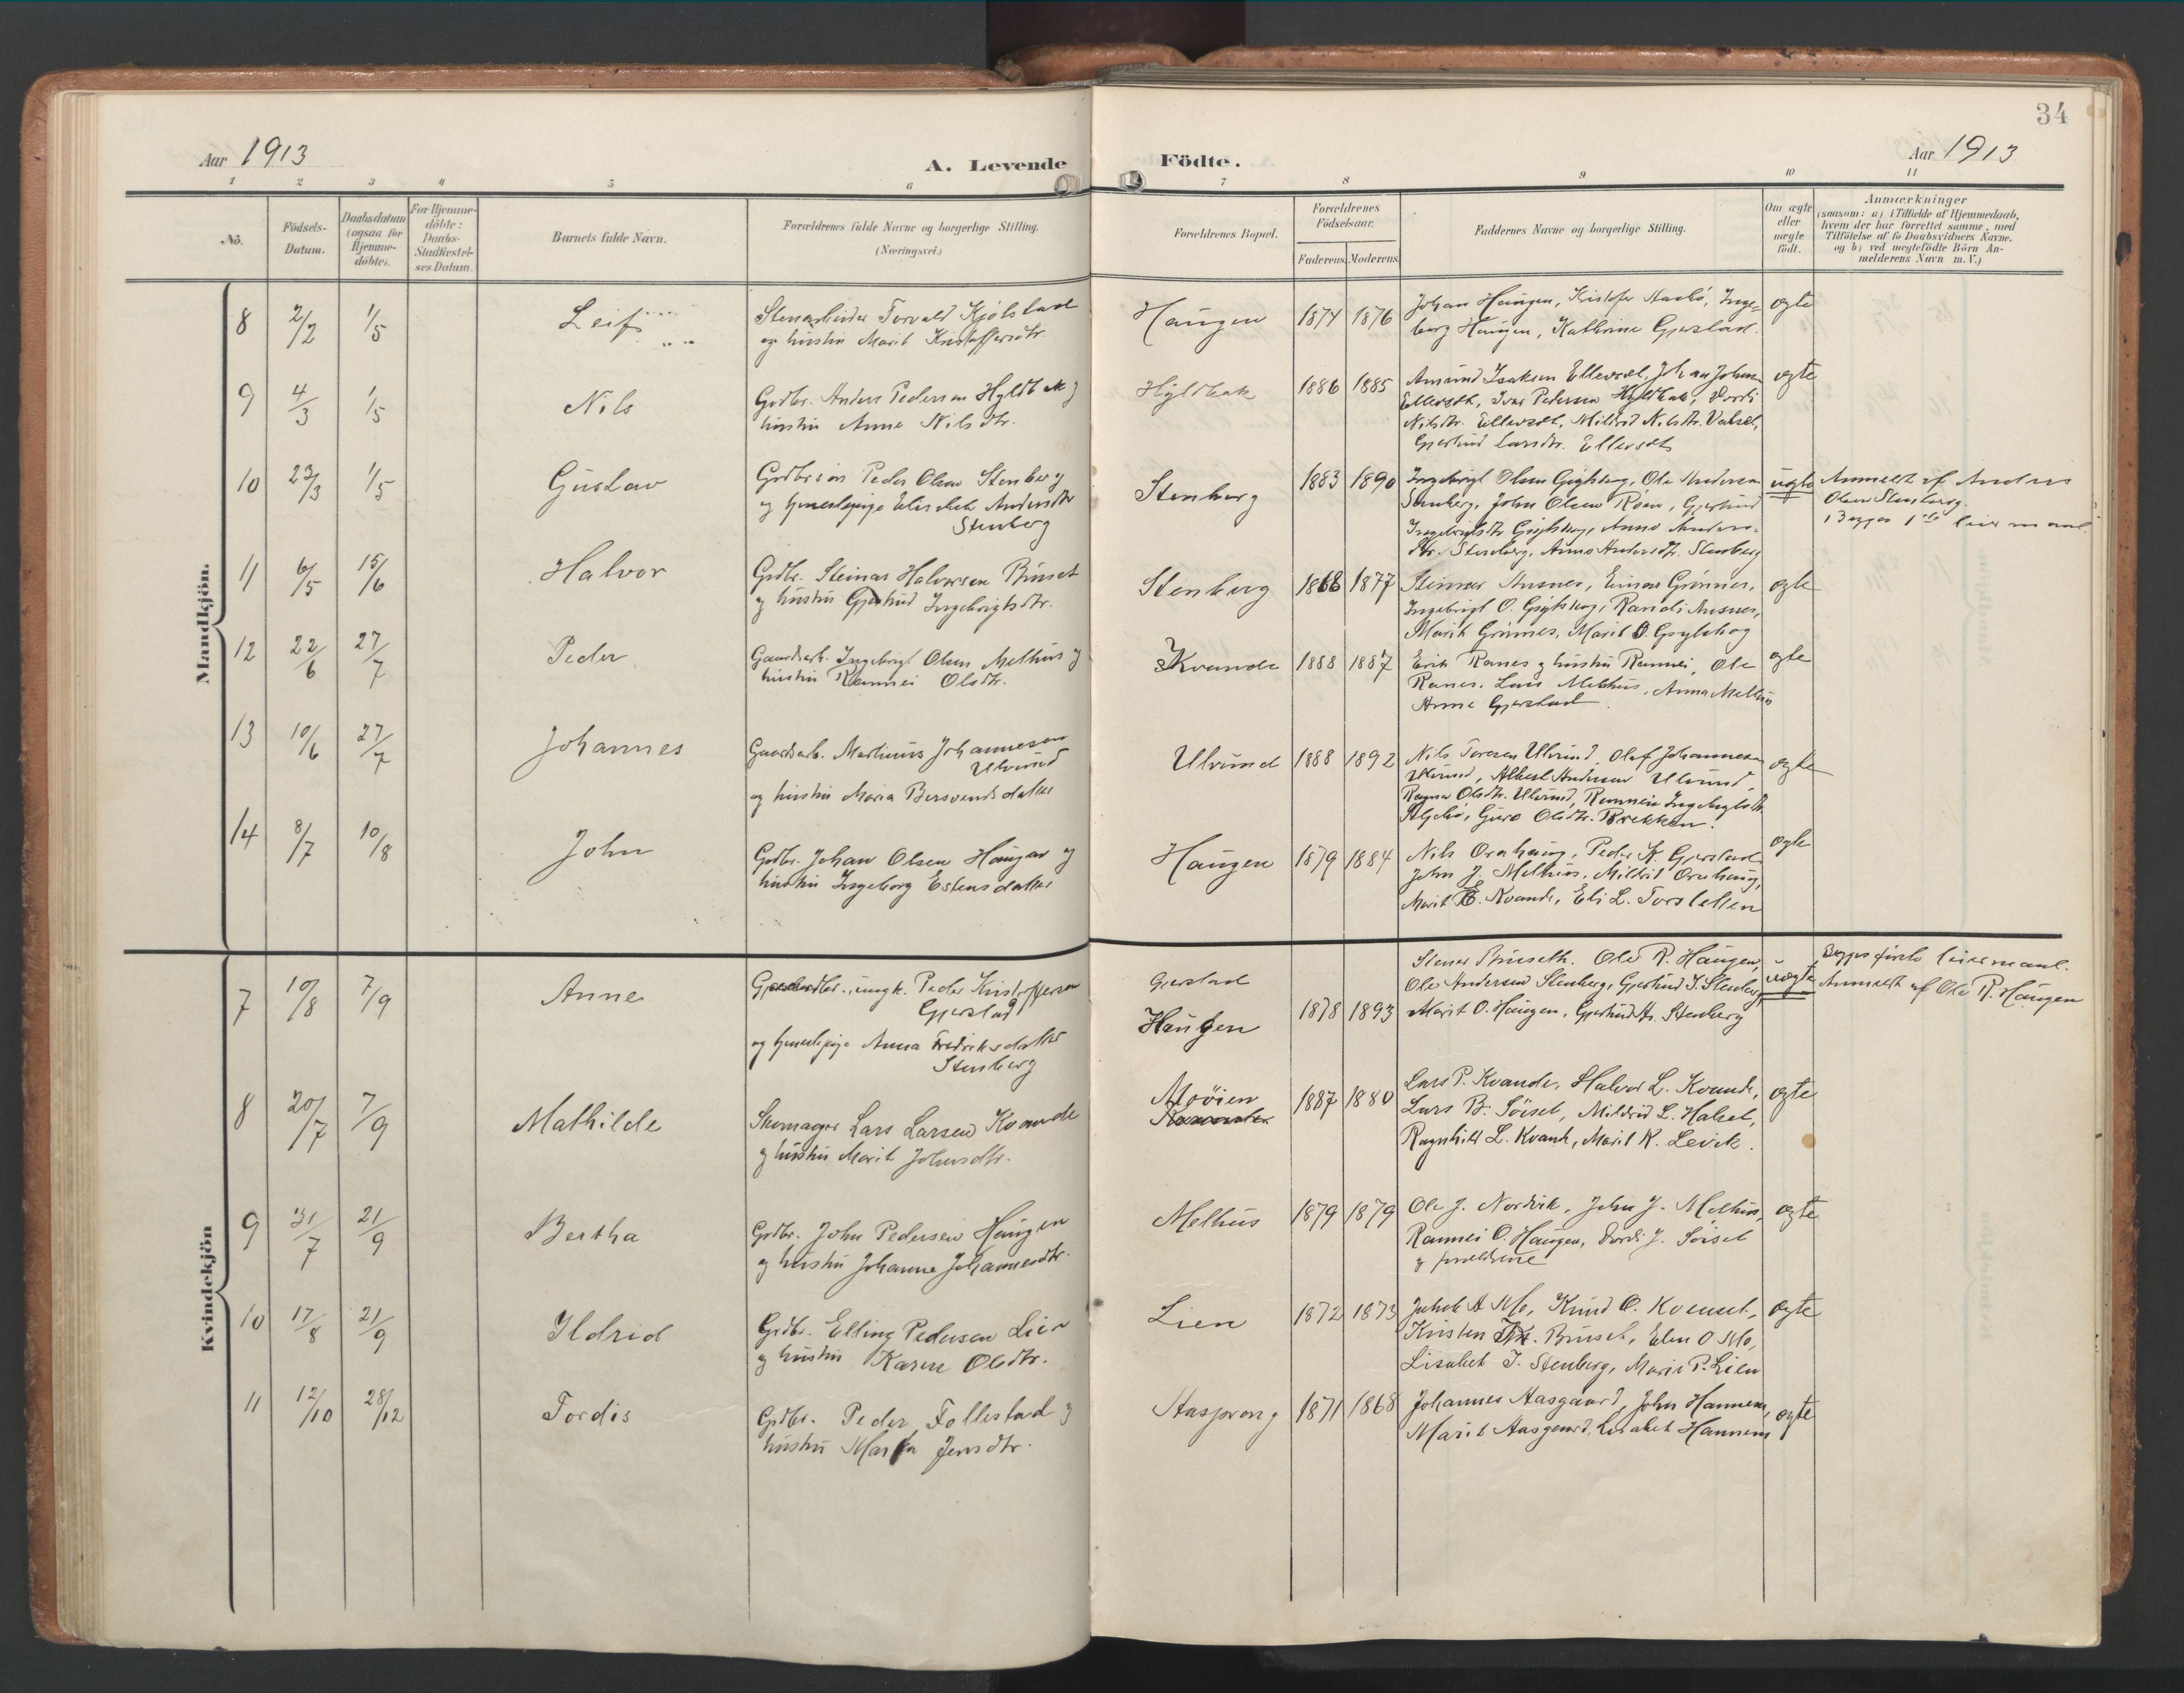 34
Aar 1913
A. Levende Födte.
Aar 1913
1 2 3 4 5 6 7 8 9 10 11
No.
Födsels-
Datum.
Daabsdatum
(ogsaa for
Hjemme-
döbte).
For Hjemme-
döbte:
Daabs-
Stadfæstel-
ses Datum.
Barnets fulde Navn.
Forældrenes fulde Navne og borgerlige Stilling.
(Næringsvei.)
Forældrenes Bopæl.
Forældrenes
Födselsaar.
Faderens. Moderens.
Faddernes Navne og borgerlige Stilling.
Om ægte
eller
uægte
födt.
Anmærkninger
(saasom: a) i Tilfælde af Hjemmedaab,
hvem der har forrettet samme, med
Tilföielse af to Daabsvidners Navne,
og b) ved uægtefödte Börn An-
melderens Navn m. V.)
Mandkjön.
8 2/2 1/5 Leif
Stenarbeider Torvald Kjölstad
og hustru Marit Kristoffersdtr.
Haugen 1874 1876
Johan Haugen, Kristofer Aasbö, Inge-
borg Haugen, Kathrine Gjerstad.
ægte
9 4/3 1/5 Nils
Grdbr. Anders Pedersen Hyldbak og
hustru Anne Nilsdtr.
Hyldbak 1886 1885
Amund Isaksen Ellevset, Johan Johns
Ellevset, Ivar Pedersen Hyldbak, Dordi
Nilsdtr. Ellevset, Mildrid Nilsdtr. Valset,
Gjertrud Larsdtr. Ellevset
ægte
10 23/3 1/5 Gustav
Grdbrsön Peder Olsen Stenberg
og Gmeelpige Elisabet Andersdtr
Stenberg
Stenberg 1883 1890
Ingebrigt Olsen Gisihaug, Ole Andersen
Stenberg, John Olsen Röen, Gjertrud
Ingebrigtsdtr, Anne Anders-
dtr. Stenberg, Anne Andersdtr. Stenberg
uægte
Anmeldt af Anders
Olsen Stenberg.
Begges 1ste leiermaal
11 6/5 15/6 Halvor
Grdbr. Steinar Halvorsen Bruset
og hustru Gjertrud Ingebrigtsdtr.
Stenberg 1868 1877
Steinar Ausnes, Einar Grönnes,
Ingebrigt O., Randi Ausnes,
Marit Grönnes, Marit O.
ægte
12 22/6 27/7 Peder
Gaardarb. Ingebrigt Olsen Melhus og
hustru Rannei Olsdtr.
Kvande 1888 1887
Erik Ranes og hustru Rannei, Ole
Ranes, Lars Melhus, Anna Melhus
Anne Gjerstad.
ægte
13 10/6 27/7 Johannes
Gaardarb. Martinus Johannesen
Ulvund
og hustru Maria Bersvendsdatter
Ulvund 1888 1892
Nils Toresen Ulvund, Olaf Johannesen
Ulvund, Albert Andersen Ulvund,
Ragna Olsdtr. Ulvund, Rannein Ingebrigtsdtr.
Guro Olsdtr. Brekken.
ægte
14 8/7 10/8 John
Grdbr. Johan Olsen Haugen og
hustru Ingeborg Estensdatter
Haugen 1879 1884
Nils Orahaug, Peder K. Gjerstad
John J. Melhus, Mildrid Orahaug,
Marit E. Kvande, Eli L. Torsletten
ægte
Kvindekjön
7 10/8 7/9 Anne
ungk. Peder Kristoffersen
Gjerstad
og Gmeelpige Anna Fredriksdatter
Stenberg
Gjerstad
Haugen 1878 1893
Stener Bruseth. Ole R. Haugen,
Ole Andersen Stenberg, Gjertrud I. Stenberg
Marit O. Haugen, Gjertrud A. Stenberg
uægte
Begges förste leiermaal.
Anmeldt af Ole R. Haugen
8 20/7 7/9 Mathilde
Skomager Lars Larsen Kvande
og hustru Marit Johnsdtr.
Moöien 1887 1880
Lars P. Kvande, Halvor L. Kvande,
Lars B. Söiset, Mildrid L. Halset,
Ragnhild L. Kvande, Marit K. Levik.
ægte
9 31/7 21/9 Bertha
Grdbr. John Pedersen Haugen
og hustru Johanne Johannesdtr.
Melhus 1879 1879
Ole J. Nordvik, John J. Melhus,
Rannei O. Haugen, Dordi J. Söiset
og forældrene
ægte
10 17/8 21/9 Ildrid
Grdbr. Elling Pedersen Lien
og hustru Karen Olsdtr.
Lien 1872 1873
Jakob A Mo, Knud O. Kvenset,
Kristen Bruset, Elen O Mo,
Lisabet I. Stenberg, Marit P. Lien
ægte
11 12/10 28/12 Tordis
Grdbr. Peder Follestad og
hustru Marta Jensdtr.
Aasprong 1871 1868
Johannes Aasgaard, John Hannem,
Marit Aasgaard, Lisabet Hannem
ægte